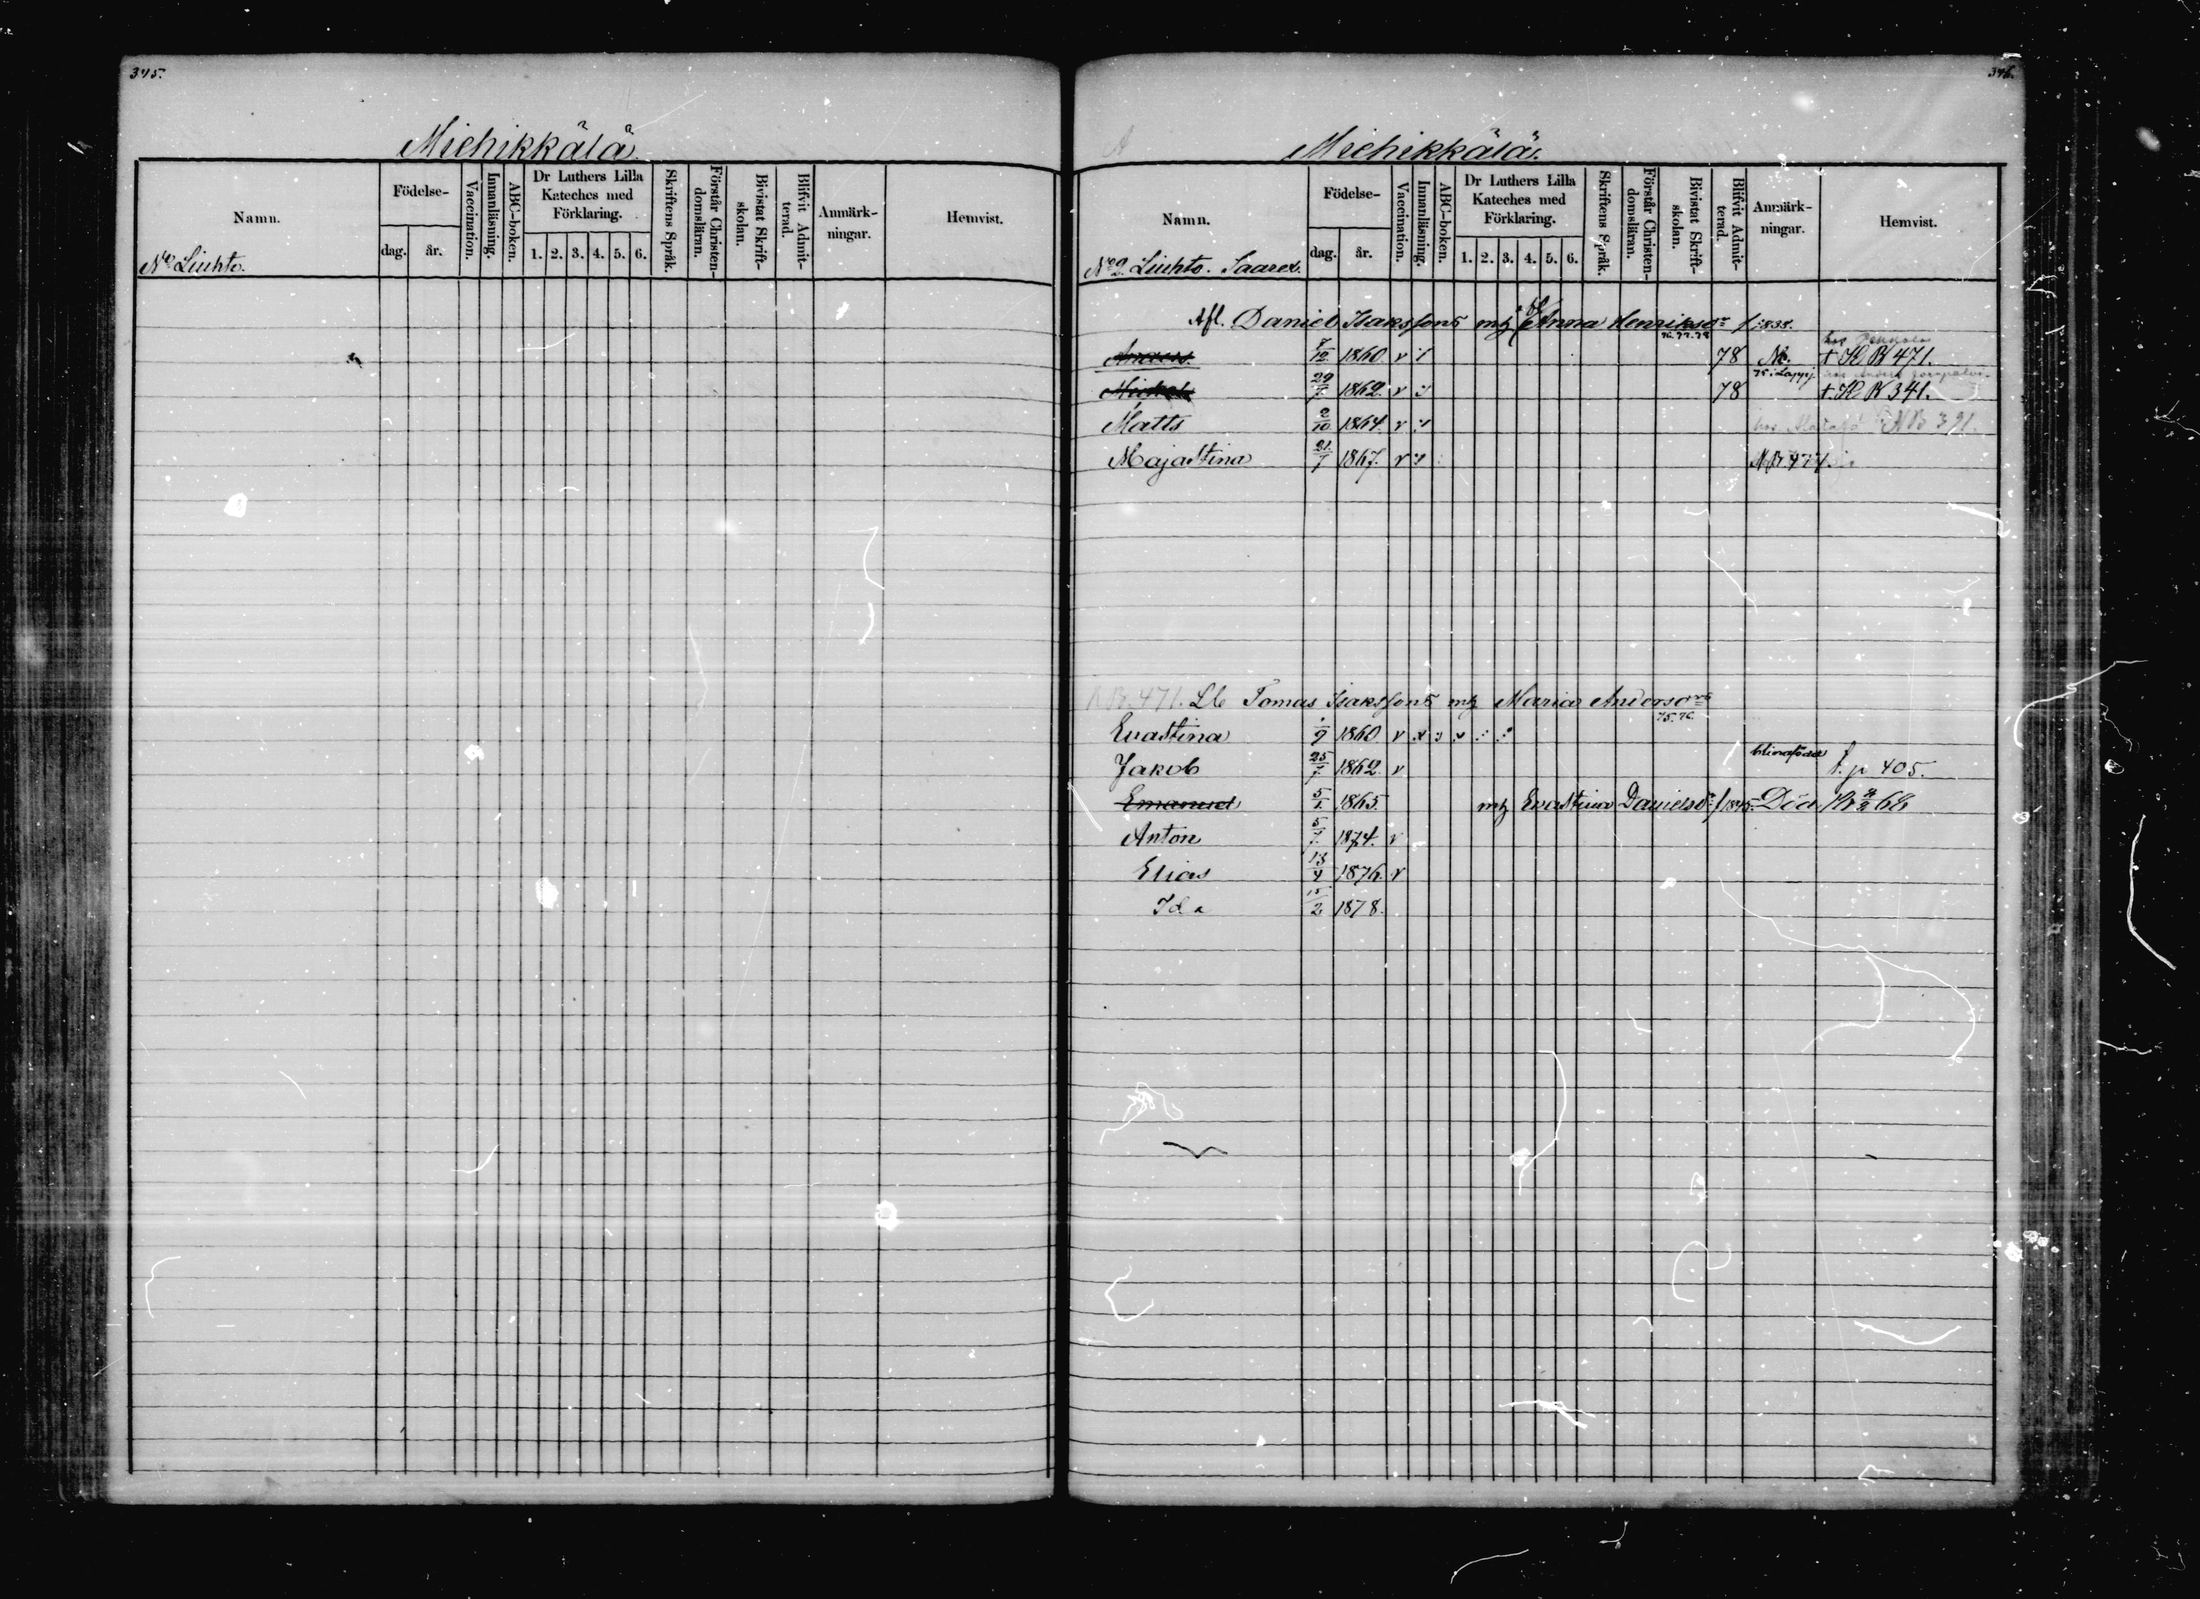 345.
Miehikkälä.
Namn.
Födelse-
dag.
år.
Vaccination.
Innanläsning.
ABC-boken.
Dr Luthers Lilla
Kateches med
Förklaring.
1. 2. 3. 4. 5. 6.
Skriftens Språk.
Förstår Christen-
domsläran.
Bivistat Skrift-
skolan.
Blifvit Admit-
terad.
Anmärk-
ningar.
Hemvist.
No Liuhto.
346.
Miehikkälä.
Namn.
Födelse-
dag.
år.
Vaccination.
Innanläsning.
ABC-boken.
Dr Luthers Lilla
Kateches med
Förklaring.
1. 2. 3. 4. 5. 6.
Skriftens Språk.
Förstår Christen-
domsläran.
Bivistat Skrift-
skolan.
Blifvit Admit-
terad.
Anmärk-
ningar.
Hemvist.
No 2. Liuhto. Saarex.
Afl. Daniel Isakssons Anna Henriksdr f 1838.
76. 77. 78
7/12 1860. v 78 † K B 471.
29/7 1862. v 78 † K B 341.
Matts 2/10 1864. v N B 391.
Majastina 21/7 1867. v N B 477.
R B. 471. Lb Tomas Isakssons Maria Andersdr
75. 76.
Evastina 1860 v
Jakob 25/7 1862. v f. p 405.
Emanuel 5/1 1865. Evastina Danielsdr f 1845. Död 68
Anton 5/7 1874. v
Elias 13/4 1876. v
Ida 15/2 1878.